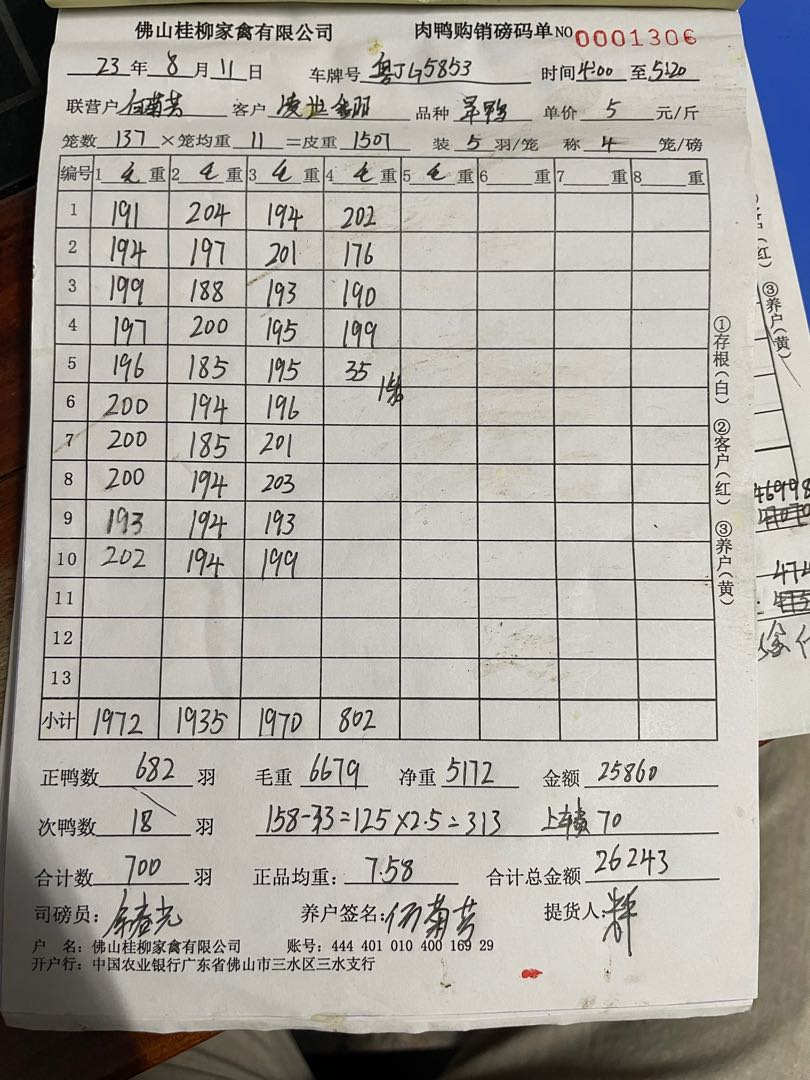 佛山桂柳家禽有限公司 肉鸭购销磅码单 NO 0001306
23年8月11日 车牌号 粤J G5853 时间4:00至5:20
联营户 何菊芳 客户 品种 旱鸭 单价 5 元/斤
笼数 137 ×笼均重 11 =皮重 1507 装 5 羽/笼 称 4 笼/磅
编号 1 毛 重 2 毛 重 3 毛 重 4 毛 重 5 毛 重 6 重 7 重 8 重
1 191 204 194 202
2 194 197 201 176
3 199 188 193 190
4 197 200 195 199
5 196 185 195 35
6 200 194 196
7 200 185 201
8 200 194 203
9 193 194 193
10 202 194 199
11
12
13
小计 1972 1935 1970 802
正鸭数 682 羽 毛重 6679 净重 5172 金额 25860
次鸭数 18 羽 158-33=125×2.5=313 上车费 70
合计数 700 羽 正品均重: 7.58 合计总金额 26243
司磅员: 养户签名: 何菊芳 提货人:
户 名: 佛山桂柳家禽有限公司 账号: 444 401 010 400 169 29
开户行: 中国农业银行广东省佛山市三水区三水支行
①存根(白) ②客户(红) ③养户(黄)
(红) ③养户(黄)
46998
474